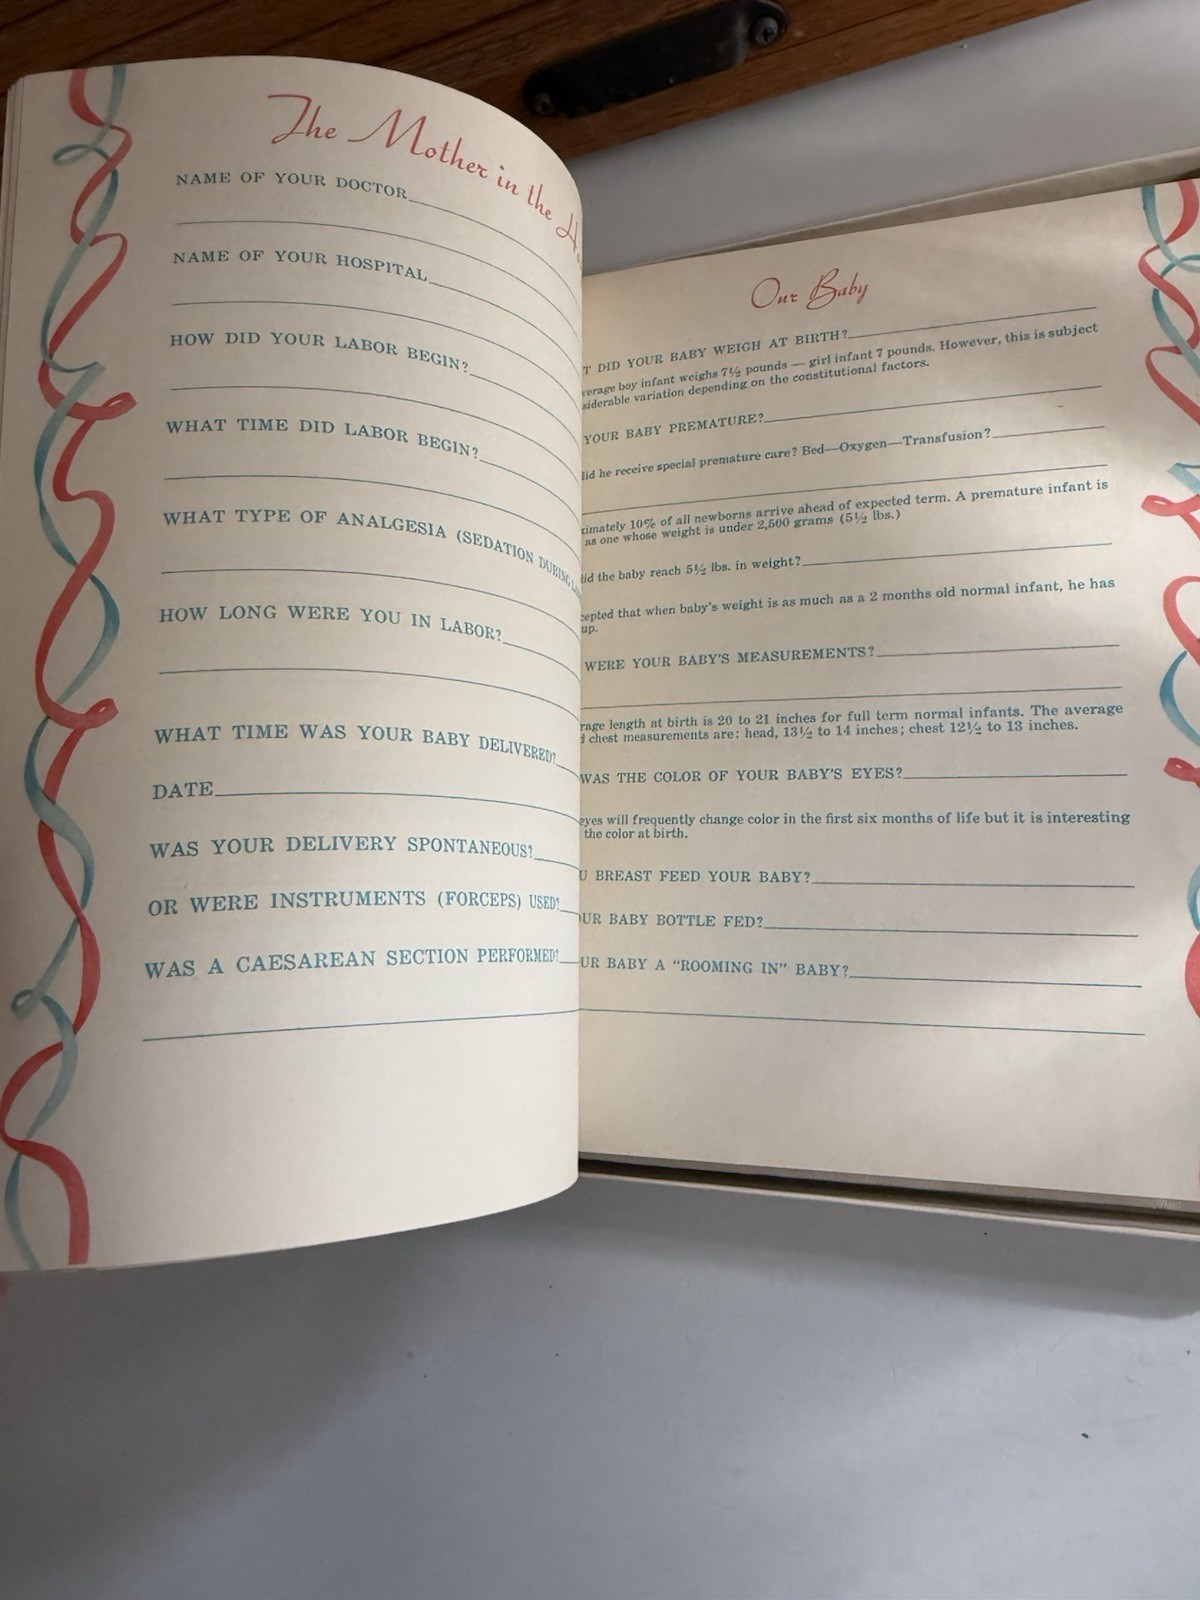 The Mother in the
NAME OF YOUR DOCTOR
NAME OF YOUR HOSPITAL
HOW DID YOUR LABOR BEGIN?
WHAT TIME DID LABOR BEGIN?
WHAT TYPE OF ANALGESIA (SEDATION DURING
HOW LONG WERE YOU IN LABOR?
WHAT TIME WAS YOUR BABY DELIVERED?
DATE
WAS YOUR DELIVERY SPONTANEOUS?
OR WERE INSTRUMENTS (FORCEPS) USED?
WAS A CAESAREAN SECTION PERFORMED?
Our Baby
DID YOUR BABY WEIGH AT BIRTH?
boy infant weighs 7½ pounds — girl infant 7 pounds. However, this is subject
variation depending on the constitutional factors.
YOUR BABY PREMATURE?
he receive special premature care? Bed—Oxygen—Transfusion?
10% of all newborns arrive ahead of expected term. A premature infant is
as one whose weight is under 2,500 grams (5½ lbs.)
the baby reach 5½ lbs. in weight?
that when baby's weight is as much as a 2 months old normal infant, he has
up.
WERE YOUR BABY'S MEASUREMENTS?
length at birth is 20 to 21 inches for full term normal infants. The average
chest measurements are: head, 13½ to 14 inches; chest 12½ to 13 inches.
WAS THE COLOR OF YOUR BABY'S EYES?
eyes will frequently change color in the first six months of life but it is interesting
the color at birth.
BREAST FEED YOUR BABY?
BABY BOTTLE FED?
BABY A "ROOMING IN" BABY?